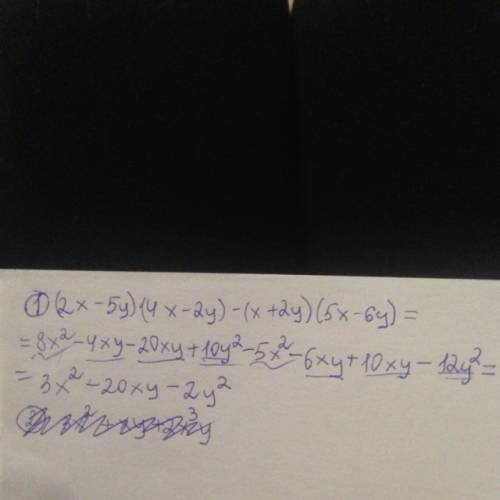 ① (2x-5y)(4x-2y)-(x+2y)(5x-6y)=
=8x²-4xy-20xy+10y²-5x²-6xy+10xy-12y²=
=3x²-20xy-2y²